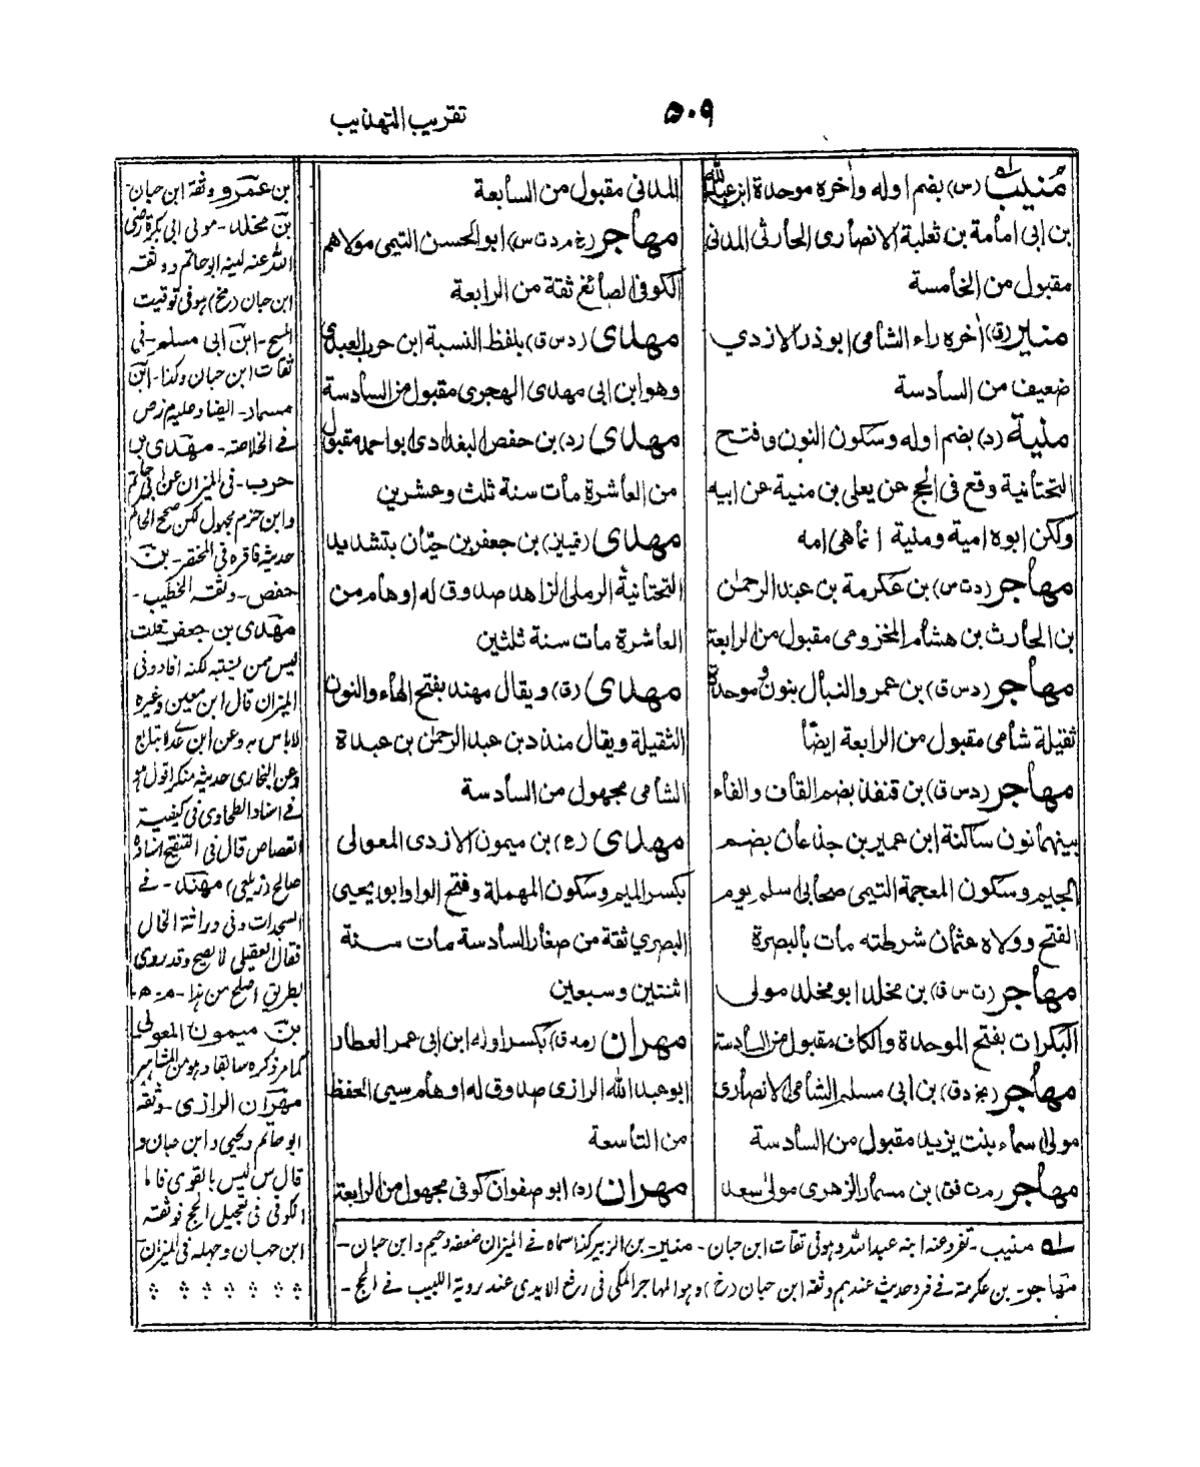 ٥٠٩
تقريب التهذيب
مُنيب (س) بضم اوله وأخره موحدة ابن عبد الله
بن ابى امامة بن ثعلبة الانصارى الحارثى المدنى
مقبول من الخامسة
منير (ق) أخره راء الشامى ابوذر الازدي
ضعيف من السادسة
منية (د) بضم اوله وسكون النون وفتح
التحتانية وقع فى الحج عن يعلى بن منية عن ابيه
ولكن ابوه امية ومنية انما هى امه
مهاجر (د ت س) بن عكرمة بن عبد الرحمن
بن الحارث بن هشام المخزومى مقبول من الرابعة
مهاجر (د س ق) بن عمرو النبال بنون وموحدة
ثقيلة شامى مقبول من الرابعة ايضًا
مهاجر (د س ق) بن قنفذ بضم القاف والفاء
بينهما نون ساكنة ابن عمير بن جذعان بضم
الجيم وسكون المعجمة التيمى صحابى اسلم يوم
الفتح وولاه عثمان شرطته مات بالبصرة
مهاجر (ت س ق) بن مخلد ابو مخلد مولى
البكرات بفتح الموحدة والكاف مقبول من السادسة
مهاجر (بخ د ق) بن ابى مسلم الشامى الانصارى
مولى اسماء بنت يزيد مقبول من السادسة
مهاجر بن مسمار الزهرى مولى سعد
المدنى مقبول من السابعة
مهاجر (خ م د ت س) ابو الحسن التيمى مولاهم
الكوفى الصائغ ثقة من الرابعة
مهدى (د س ق) بلفظ النسبة ابن حرب العبدى
وهو ابن ابى مهدى الهجرى مقبول من السادسة
مهدى (د) بن حفص البغدادى ابو احمد مقبول
من العاشرة مات سنة ثلث وعشرين
مهدى بن جعفر بن حيّان بتشديد
التحتانية الرملى الزاهد صدوق له اوهام من
العاشرة مات سنة ثلثين
مهدى (ق) ويقال مهند بفتح الهاء والنون
الثقيلة ويقال مندد بن عبد الرحمن بن عبدة
الشامى مجهول من السادسة
مهدى (ع) بن ميمون الازدى المعولى
بكسر الميم وسكون المهملة وفتح الواو ابو يحيى
البصري ثقة من صغار السادسة مات سنة
اثنتين وسبعين
مهران (مد ق) بكسر اوله ابن ابى عمر العطار
ابو عبد الله الرازى صدوق له اوهام سيى الحفظ
من التاسعة
مهران (د) ابو صفوان كوفى مجهول من الرابعة
بن عمرو وثقة ابن حبان
بن مخلد - مولى ابى بكرة رضى
الله عنه لينه ابو حاتم ووثقه
ابن حبان (مخ) هو فى توقيت
المسح - ابن ابى مسلم - فى
ثقات ابن حبان وكذا - ابن
مسمار - ايضا
فى الخلاصة - مهدى بن
حرب - فى الميزان عن ابى حاتم
وابن حزم مجهول لكن صحح الحاكم
حديثه فاقره فى المختصر - بن
حفص - وثقه الخطيب -
مهدى بن جعفر قلت
ليس ممن يشتبه لكنه افاد وفى
الميزان قال ابن معين وغيره
لا باس به وعن ابن عدى
وعن البخارى حديثه منكر اقول هو
فى اسناد الطحاوى فى كيفية
القصاص قال فى التنقيح اسناده
صالح (زيلعى) مهند - فى
السجدات وفى وراثة الخال
فقال العقيلى لا يصح وقد روى
بطريق اصلح من هذا -
بن ميمون المعولى
كما مر ذكره سابقا وهو من المشاهير
مهران الرازى - وثقه
ابو حاتم ويحيى وابن حبان و
قال س ليس بالقوى فاما
الكوفى فى تعجيل الحج فوثقه
ابن حبان وجهله فى الميزان
منيب - تفرد عنه ابنه عبد الله وهو فى ثقات ابن حبان - منير - بن الزبير كذا سماه فى الميزان ضعفه دحيم وابن حبان -
مهاجر - بن عكرمة فى فرد حديث عندهم وثقه ابن حبان (خ) وهو المهاجر المكى فى رفع الايدى عند روية البيت فى الحج -